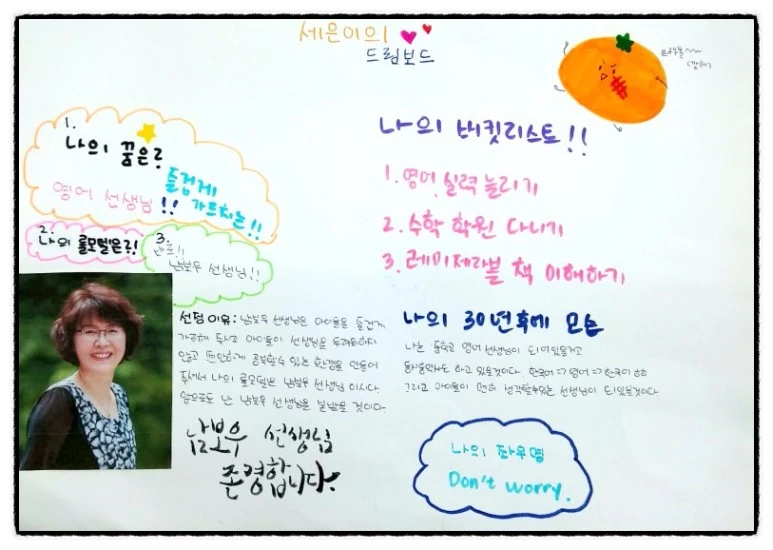 세은이의
드림보드
1.
나의 꿈은?
즐겁게
영어 선생님!! 가르치는!!
2.
나의 롤모델은?!
3.
바로!!
남보우 선생님!!
선정 이유: 남보우 선생님은 아이들을 즐겁게
가르쳐 주시고 아이들이 선생님을 두려워하지
않고 편안하게 공부할 수 있는 환경을 만들어
주셔서 나의 롤모델은 남보우 선생님이시다.
앞으로도 난 남보우 선생님을 본받을 것이다.
남보우 선생님
존경합니다.
나의 버킷리스트!!
1. 영어 실력 늘리기
2. 수학 학원 다니기
3. 레미제라블 책 이해하기
나의 30년후에 모습
나는 중학교 영어 선생님이 되어있을거고
동시통역사도 하고 있을것이다. 한국어=>영어=>한국어 ㅎㅎ
그리고 아이들이 편히 생각할수있는 선생님이 되있을것이다
나의 좌우명
Don't worry.